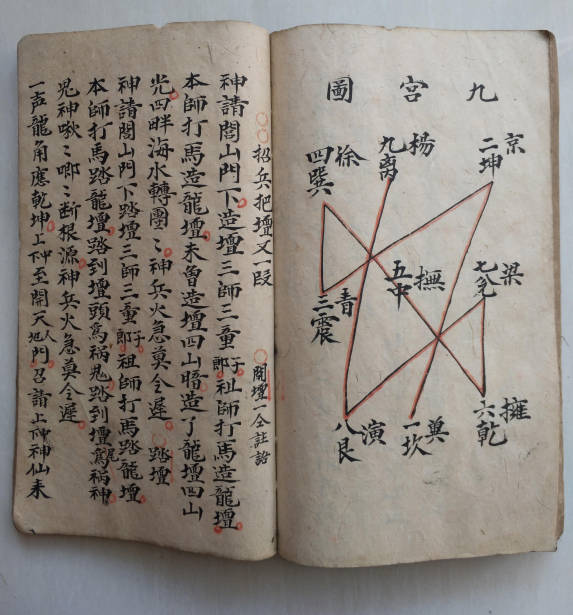 九宮圖
京
二坤
楊
九离
徐
四巽
梁
七兌
撫
五中
青
三震
擁
六乾
冀
一坎
演
八艮
招兵把壇又一段 開壇一仝註語
神請閭山門下造壇三師三童子郎祖師打馬造龍壇
本師打馬造龍壇未曾造壇四山暗造了龍壇四山
光四畔海水轉團〻神兵火急莫令遲 踏壇
神請閭山門下踏壇三師三童子郎祖師打馬踏龍壇
本師打馬踏龍壇踏到壇頭為禍鬼踏到壇尾為禍神
鬼神啾〻唧〻断根源神兵火急莫令遲
一声龍角應乾坤上中下至開天地人門召請上中下神仙來